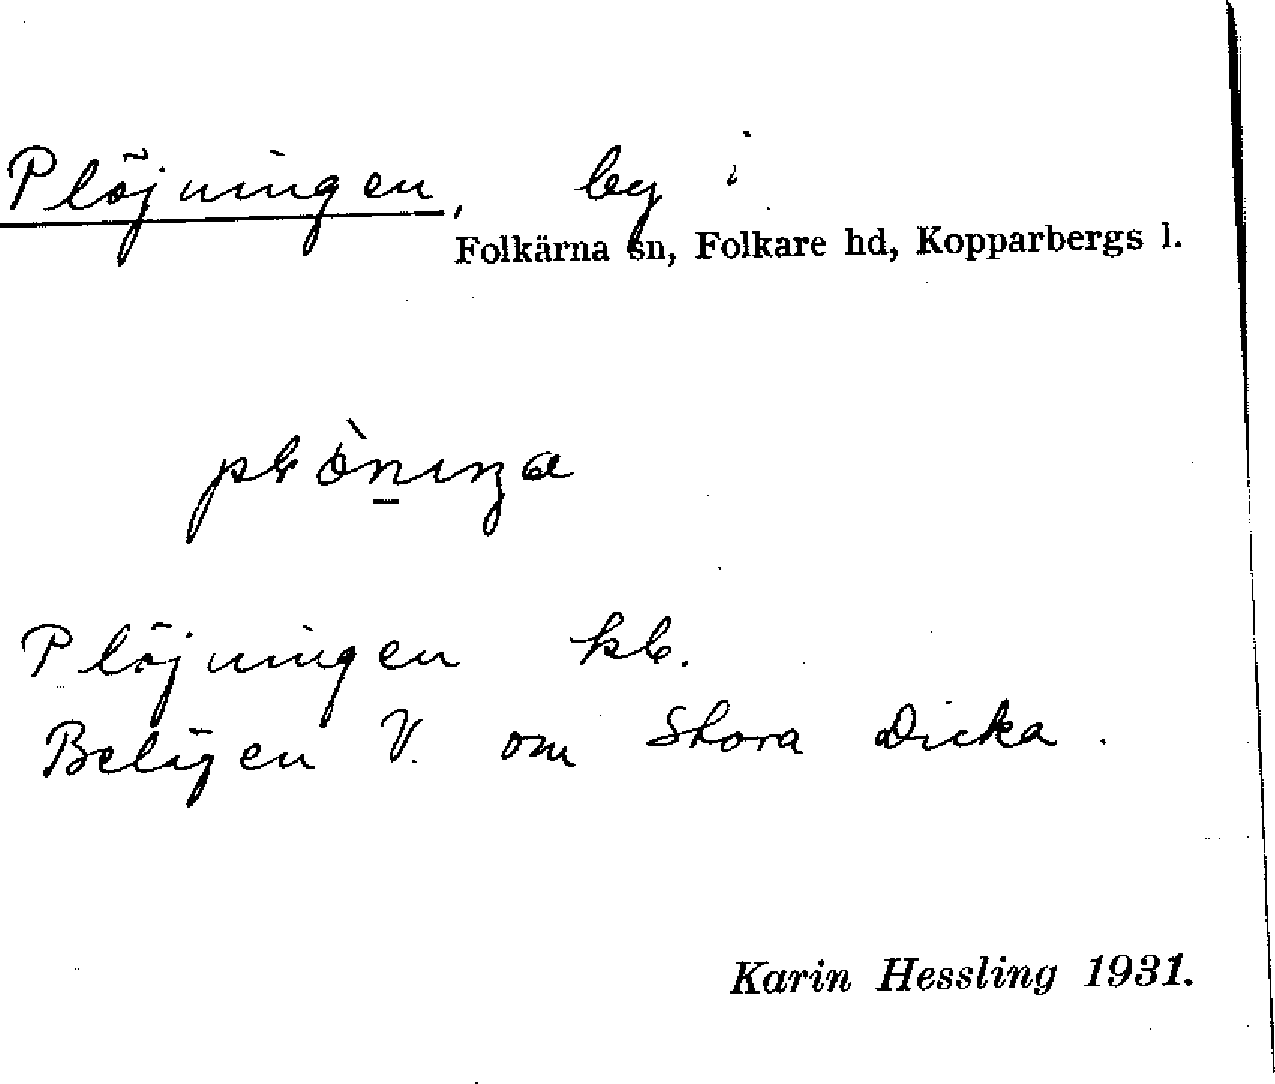 Plöjningen, by i
Folkärna sn, Folkare hd, Kopparbergs l.
Plöjningen kb.
Belägen V. om Stora Dicka.
Karin Hessling 1931.